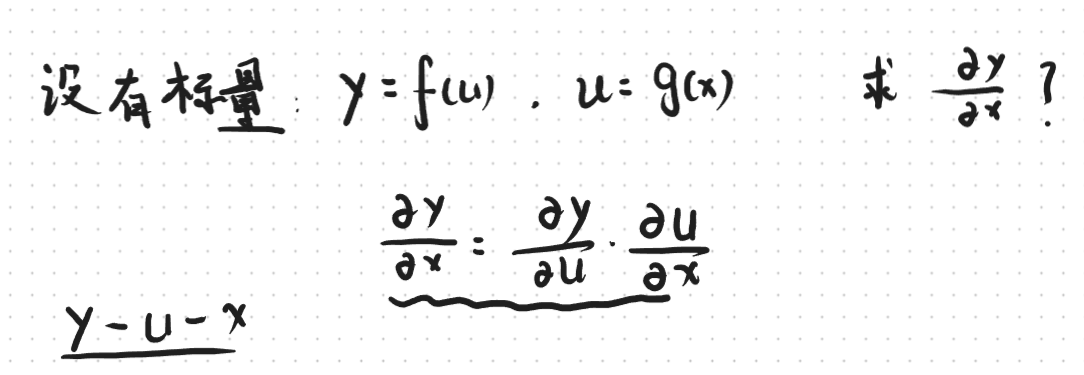 设有标量: y = f(u) . u = g(x) 求 ∂y/∂x ?
∂y/∂x = ∂y/∂u · ∂u/∂x
y - u - x